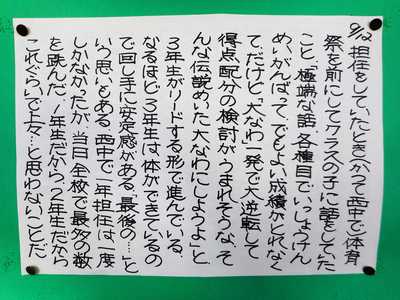 9/12 担任をしていたとき(かつて西中で)体育
祭を前にしてクラスの子に話をしていた
こと、「極端な話、各種目でいっしょうけん
めいがんばって、でもよい成績がとれなく
て、だけど「大なわ」一発で大逆転して
得点配分の検討がうまれそうな、そ
んな伝説めいた大なわにしよう」と
3年生がリードする形で進んでいる、
なるほど3年生は体ができているの
で回し手に安定感がある、最後の…」と
いう思いもある。西中で1年担任は一度
しかなかったが、当日、全校で最多の数
を跳んだ!1年生だから、2年生だから
これぐらいで上々…と思わないことだ